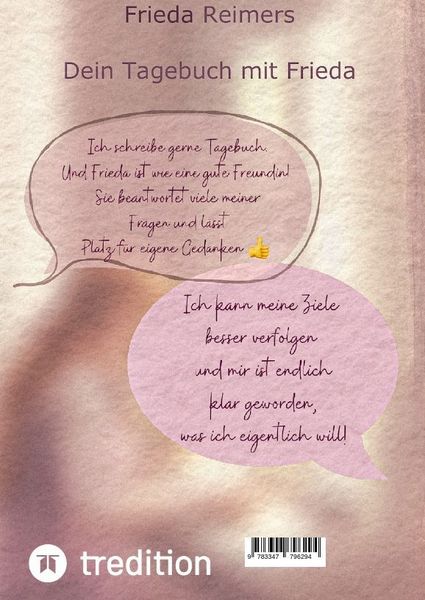 Frieda Reimers
Dein Tagebuch mit Frieda
Ich schreibe gerne Tagebuch.
Und Frieda ist wie eine gute Freundin!
Sie beantwortet viele meiner
Fragen und lässt
Platz für eigene Gedanken 👍
Ich kann meine Ziele
besser verfolgen
und mir ist endlich
klar geworden,
was ich eigentlich will!
tredition
9 783347 796294